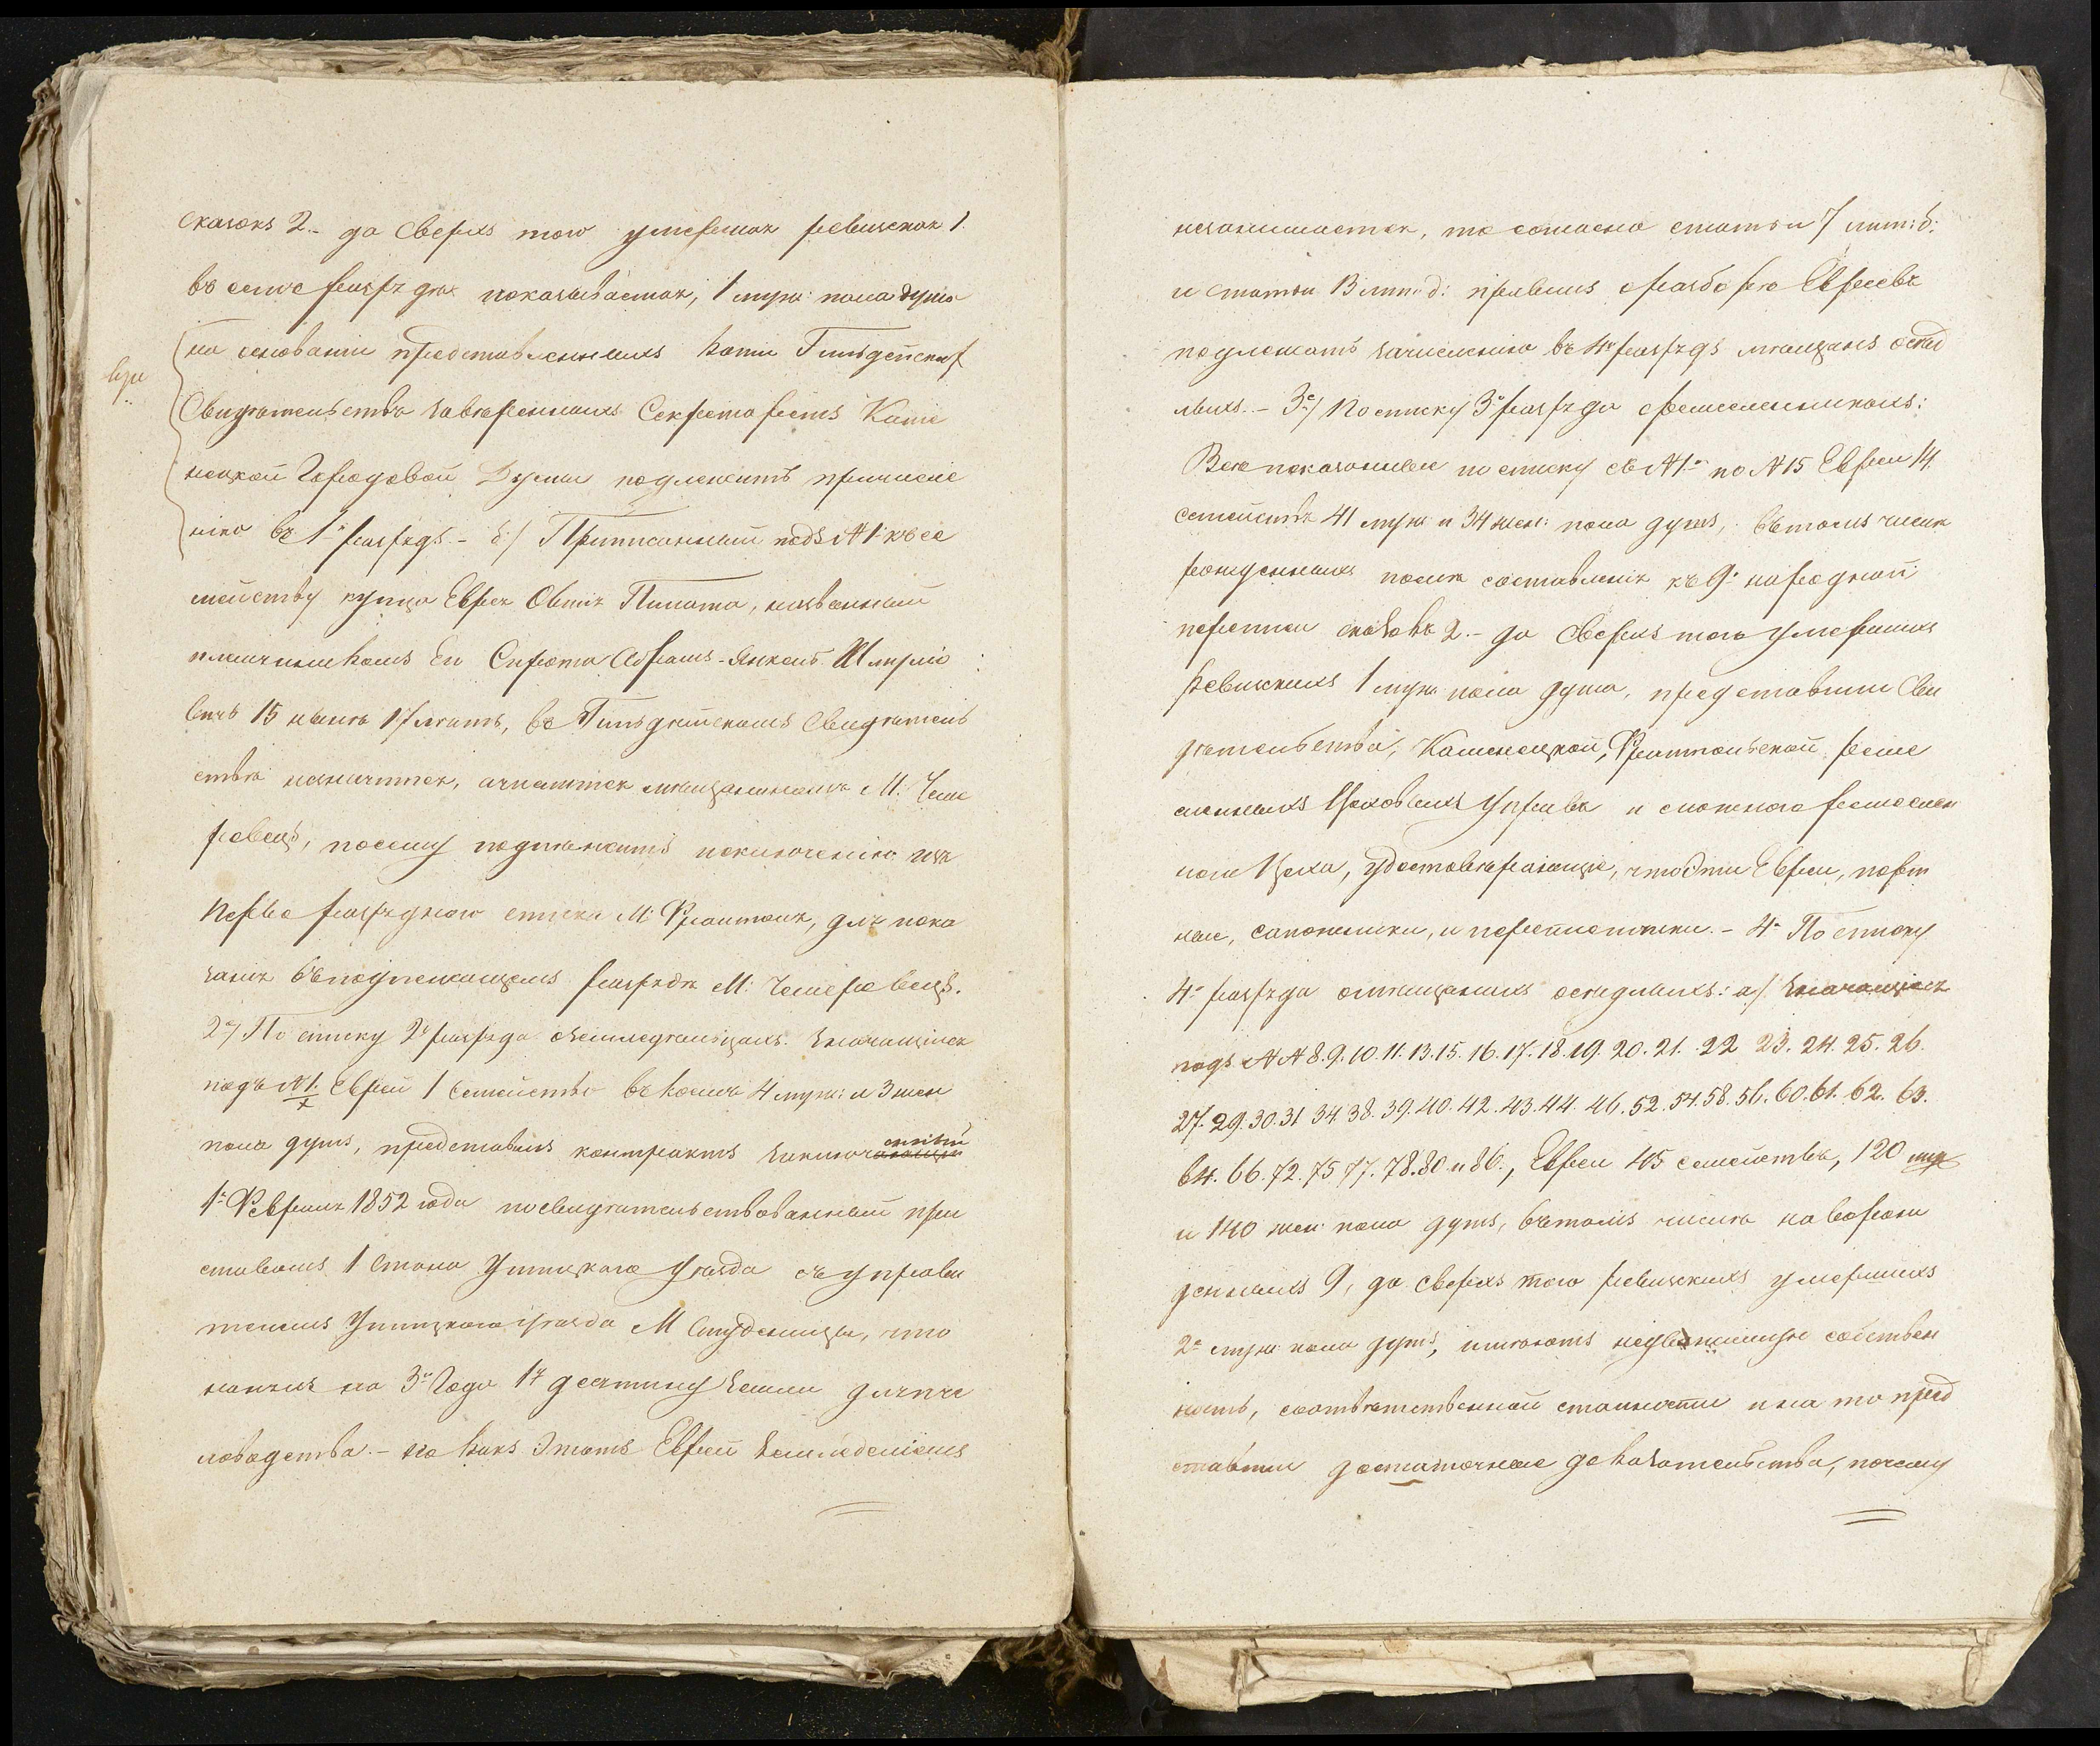 сказокъ 2. – да сверхъ того умершая ревизская 1.
въ семъ разрядѣ показываемая, 1 муж: пола душа
на основаніи представленныхъ ними Гильдейскихъ
Свидѣтельствъ завѣренныхъ Секретаремъ Каме
нецкой Городовой Думы подлежитъ причисле
нію въ 1й разрядъ. – б:/ Приписанный подъ №1. къ се
мейству купца Еврея Овшія Пината, названный
племянникомъ его Сирота Абрамъ-Янкель Шмуліо
вичъ 15 нынѣ 17 лѣтъ, въ Гильдейскомъ свидѣтель
ствѣ незначится, а числится мѣщаниномъ М. Чеме
ровецъ, посему подлежитъ исключенію изъ
перво разряднаго списка М: Фрамполя, для пока
занія въ подлежащемъ разрядѣ М: Чемеровецъ.
2е/ По списку 2го разряда о земледѣльцахъ. Значащійся
подъ №1. Еврей 1 семейство въ коемъ 4 муж: и 3 жен
пола душъ, представилъ контрактъ заключенный
1го Февраля 1852 года посвидѣтельствованный при
ставомъ 1 стана Ушицкаго уѣзда съ управи
телемъ Ушицкого уѣзда М Студеницы, что
нанялъ на 3и года 1у десятину земли для пче
ловодства. – но какъ этотъ Еврей земледѣліемъ
незанимается, то согласно статьи 7 лит: б:
и статьи 13 лит: д: правилъ о разборѣ Евреевъ
подлежатъ зачисленію въ 4й разрядъ мѣщанъ осѣд
лыхъ. – 3е/ По списку 3го разряда о ремесленникахъ:
Всѣ показанные по списку съ №1го по №15 Евреи 14
семействъ 41 муж: и 34 жен: пола душъ, въ томъ числѣ
рожденныхъ послѣ составленія къ 9й народной
переписи сказокъ 2. – да сверхъ того умершихъ
ревизскихъ 1 муж: пола душа, представили Сви
дѣтельства, Каменецкой, Фрампольской реме
сленныхъ Цеховыхъ Управъ и сложнаго ремеслен
наго Цеха, удостовѣряющіе, что эти Евреи, порт
ные, сапожники, и переплетчики. – 4е По списку
4го разряда о мѣщанахъ осѣдлыхъ: а/ Значащіеся
подъ №№ 8. 9. 10. 11. 13. 15. 16. 17. 18. 19. 20. 21. 22 23. 24. 25. 26.
27. 29. 30. 31 34. 38. 39. 40. 42. 43. 44. 46. 52. 54. 58. 56. 60. 61. 62. 63.
64. 66. 72. 75 77. 78. 80. и 86., Евреи 45 семействъ, 120 муж
и 140 жен: пола душъ, въ томъ числѣ новорож
денныхъ 9, да сверхъ того ревизскихъ умершихъ
2е муж: пола душъ, имѣютъ недвижимую собствен
ность, соотвѣтственной стоимости и на то пред
ставили достаточные доказательства, почему